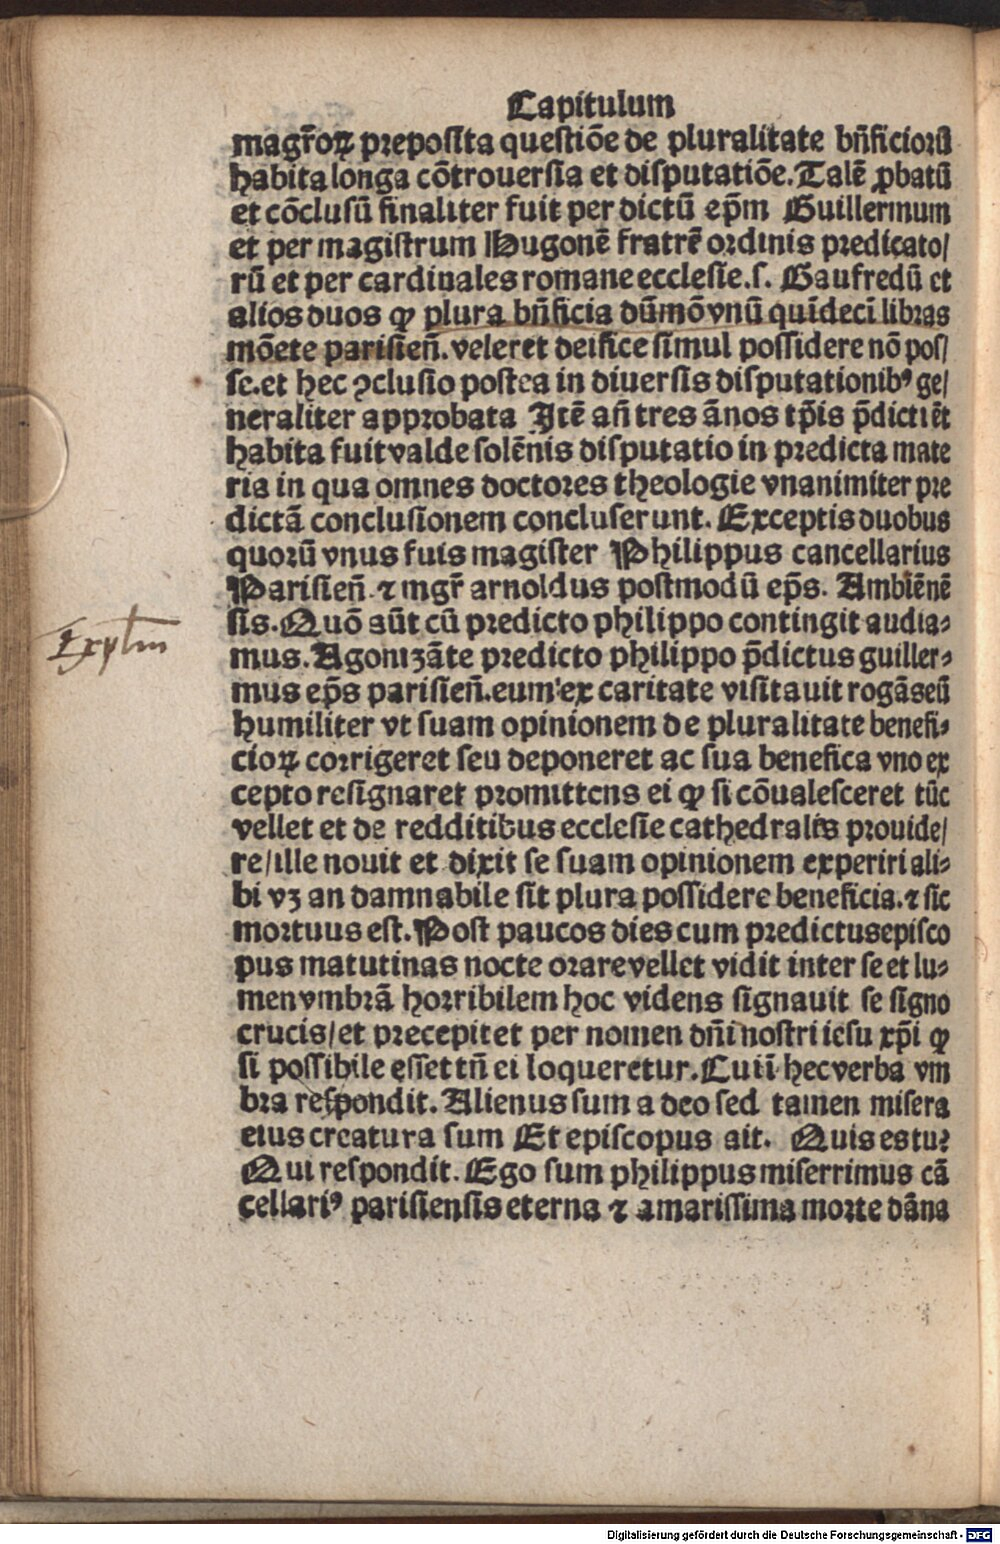 Capitulum
magr̄oꝝ preposita questiōe de pluralitate bn̄ficiorū
habita longa cōtrouersia et disputatiōe. Talē ꝓbatū
et cōclusū finaliter fuit per dictū ep̄m Guillermum
et per magistrum Hugonē fratrē ordinis predicato/
rū et per cardinales romane ecclesie. s. Gaufredū et
alios duos ꝙ plura bn̄ficia dūmō vnū quīdecī libras
mōete parisieñ. veleret deifice simul possidere nō pos/
se. et hec ꝯclusio postea in diuersis disputationibꝰ ge/
neraliter approbata Itē añ tres ānos tp̄is p̄dicti ēt
habita fuit valde solēnis disputatio in predicta mate
ria in qua omnes doctores theologie vnanimiter pre
dictā conclusionem concluserunt. Exceptis duobus
quorū vnus fuis magister Philippus cancellarius
Parisieñ ⁊ mgr̄ arnoldus postmodū ep̄s. Ambiēnē
sis. Quō aūt cū predicto philippo contingit audia⸗
mus. Agonizāte predicto philippo p̄dictus guiller⸗
mus ep̄s parisieñ. eum ex caritate visitauit rogāseū
humiliter vt suam opinionem de pluralitate benefi⸗
cioꝝ corrigeret seu deponeret ac sua benefica vno ex
cepto resignaret promittens ei ꝙ si cōualesceret tūc
vellet et de redditibus ecclesie cathedralis prouide/
re/ille nouit et dixit se suam opinionem experiri ali⸗
bi vꝫ an damnabile sit plura possidere beneficia. ⁊ sic
mortuus est. Post paucos dies cum predictus episco
pus matutinas nocte orare vellet vidit inter se et lu⸗
men vmbrā horribilem hoc videns signauit se signo
crucis/et precepit et per nomen dn̄i nostri iesu xp̄i ꝙ
si possibile esset tñ ei loqueretur. Cuii hec verba vm
bra respondit. Alienus sum a deo sed tamen misera
eius creatura sum Et episcopus ait. Quis es tu?
Qui respondit. Ego sum philippus miserrimus cā
cellariꝰ parisiensis eterna ⁊ amarissima morte dāna
Digitalisierung gefördert durch die Deutsche Forschungsgemeinschaft - DFG